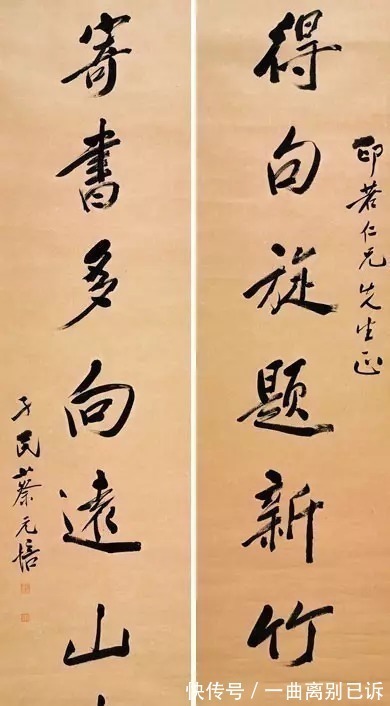 印若仁兄先生正
得句旋題新竹
寄書多向遠山
孑民蔡元培
快传号 / 一曲离别已诉